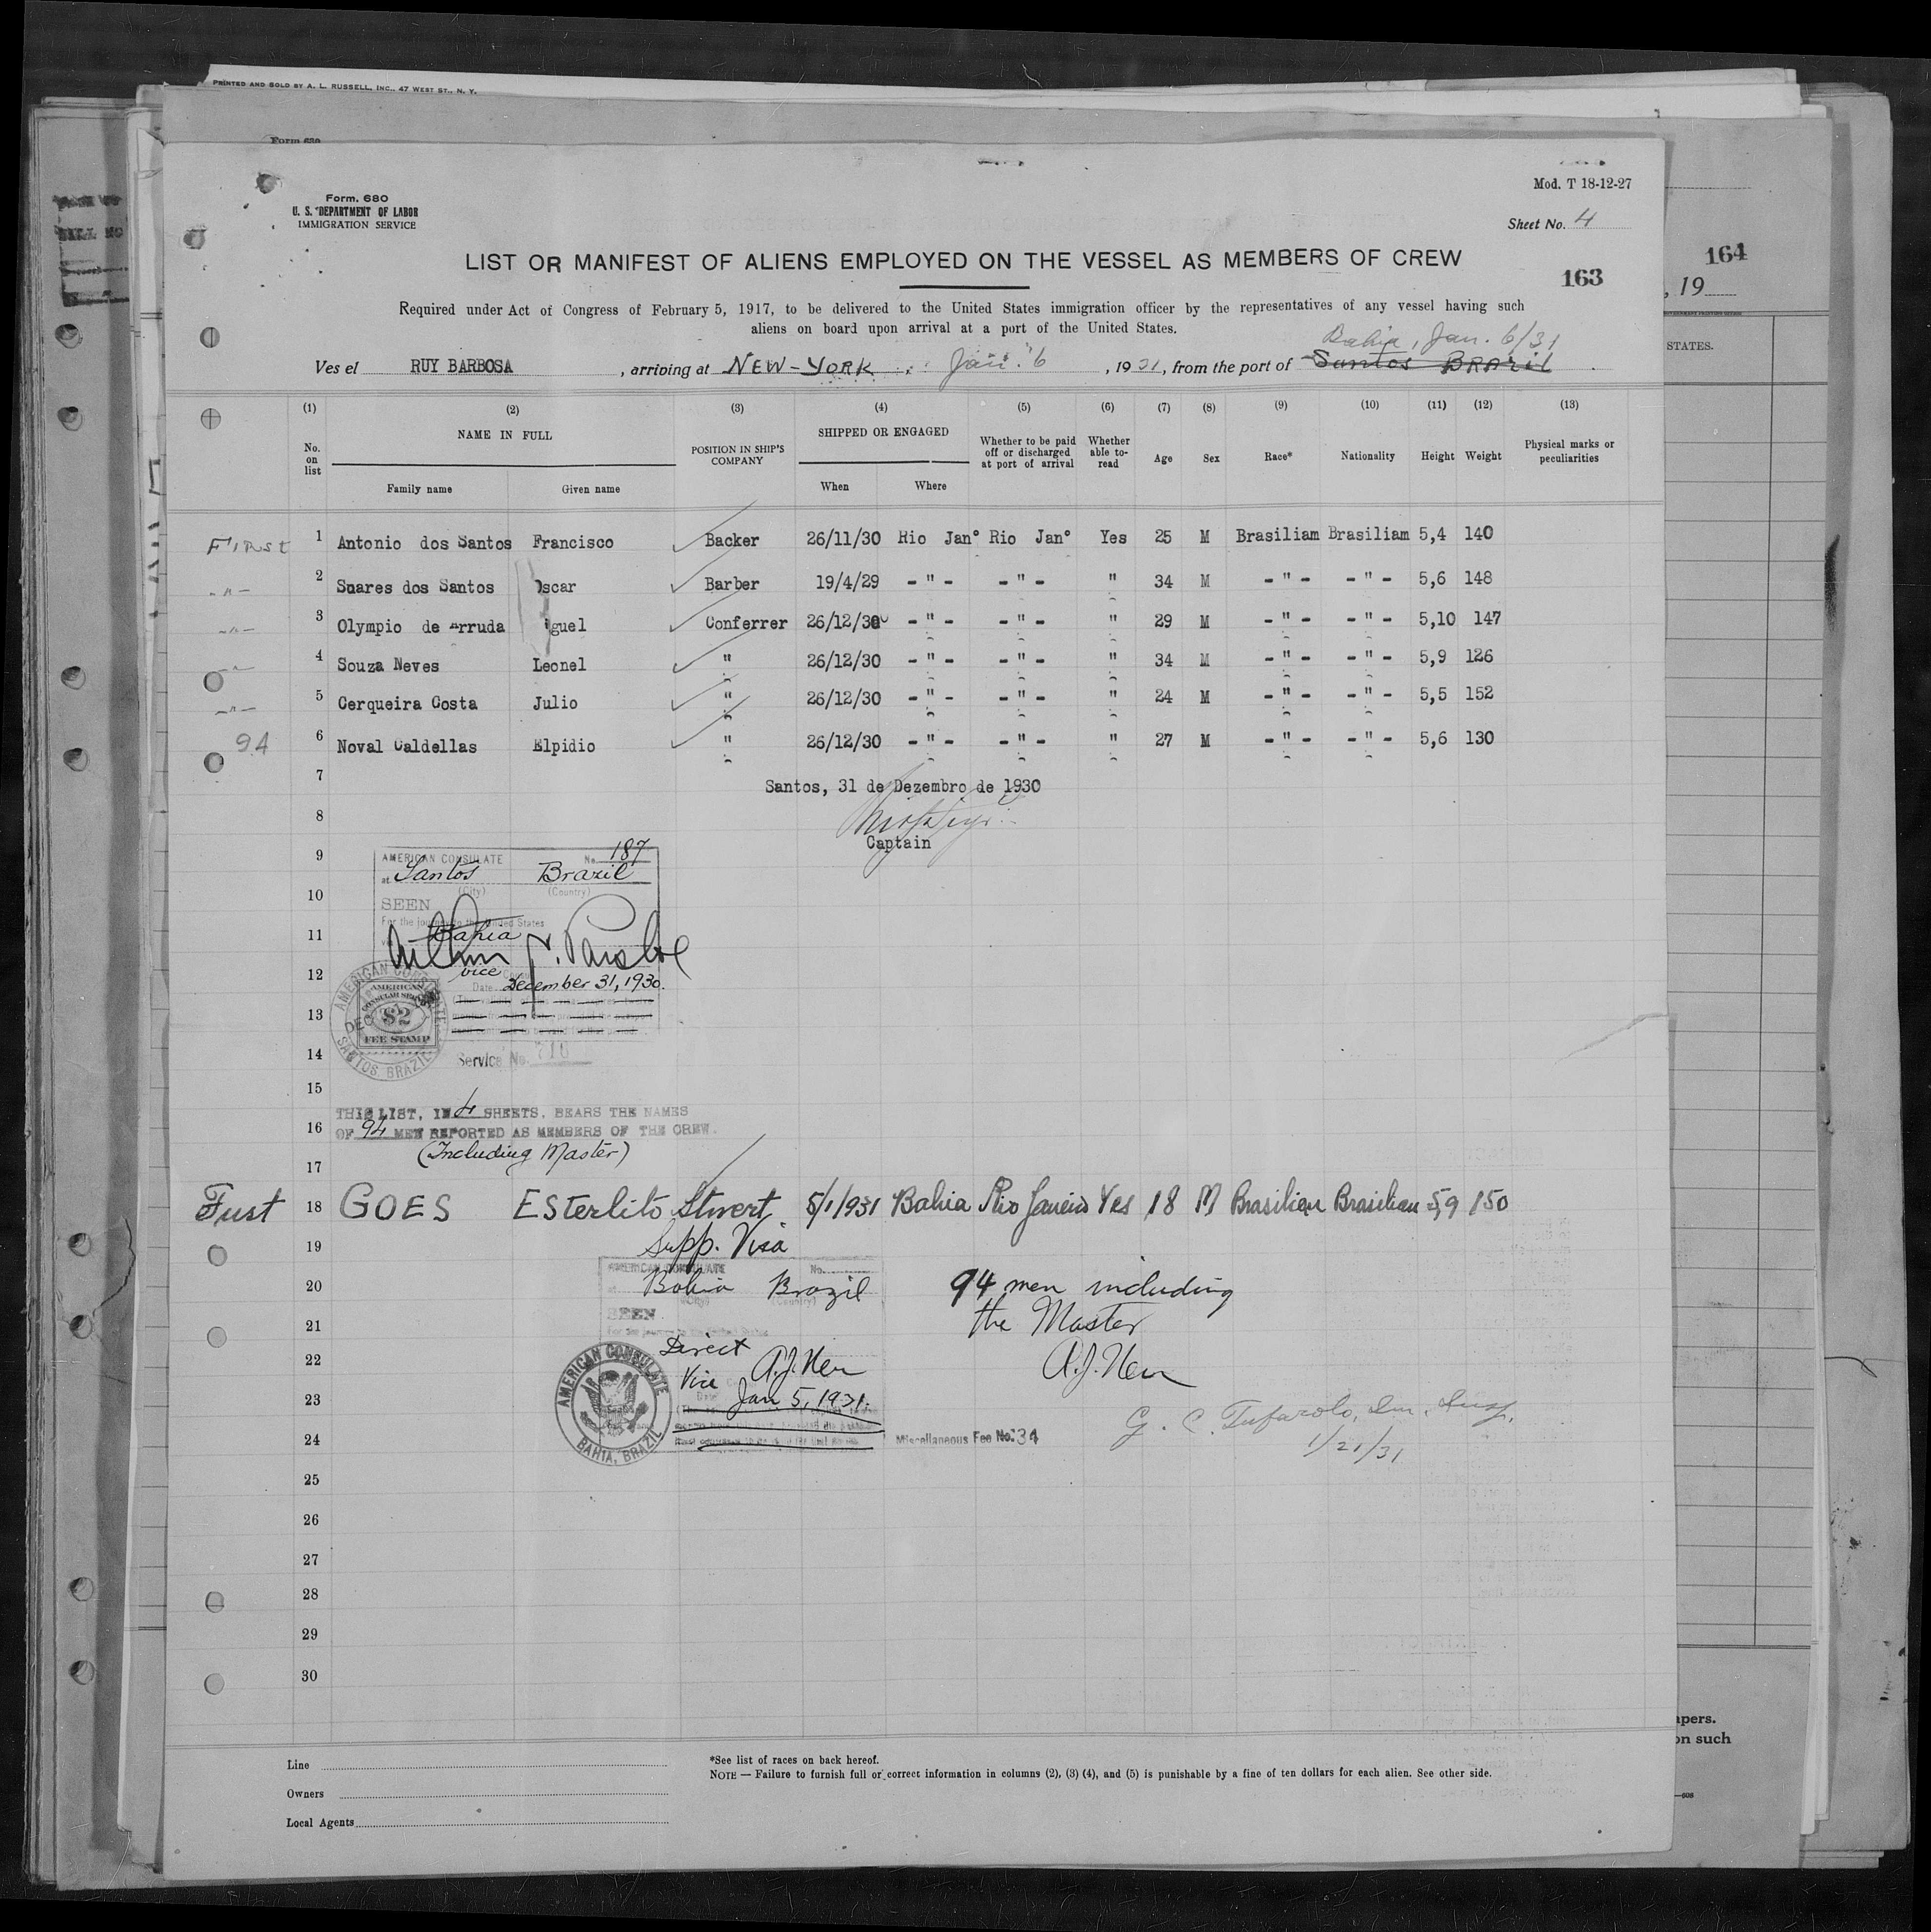 PRINTED AND SOLD BY A. L. RUSSELL, INC., 47 WEST ST., N. Y.
Form 680
Form. 680
U. S. DEPARTMENT OF LABOR
IMMIGRATION SERVICE
Mod. T 18-12-27
Sheet No. 4
LIST OR MANIFEST OF ALIENS EMPLOYED ON THE VESSEL AS MEMBERS OF CREW
163
164
, 19
STATES.
Required under Act of Congress of February 5, 1917, to be delivered to the United States immigration officer by the representatives of any vessel having such
aliens on board upon arrival at a port of the United States.
Bahia, Jan. 6/31
Ves el RUY BARBOSA, arriving at NEW-YORK, Jan. 6, 1931, from the port of Santos BRAzil
(1) (2) (3) (4) (5) (6) (7) (8) (9) (10) (11) (12) (13)
No. on list NAME IN FULL Family name Given name POSITION IN SHIP'S COMPANY SHIPPED OR ENGAGED When Where Whether to be paid off or discharged at port of arrival Whether able to-read Age Sex Race* Nationality Height Weight Physical marks or peculiarities
First 1 Antonio dos Santos Francisco Backer 26/11/30 Rio Jan° Rio Jan° Yes 25 M Brasiliam Brasiliam 5,4 140
-"- 2 Suares dos Santos Oscar Barber 19/4/29 -"- -"- " 34 M -"- -"- 5,6 148
-"- 3 Olympio de Arruda iguel Conferrer 26/12/30 -"- -"- " 29 M -"- -"- 5,10 147
-"- 4 Souza Neves Leonel " 26/12/30 -"- -"- " 34 M -"- -"- 5,9 126
-"- 5 Cerqueira Costa Julio " 26/12/30 -"- -"- " 24 M -"- -"- 5,5 152
94 6 Noval Caldellas Elpidio " 26/12/30 -"- -"- " 27 M -"- -"- 5,6 130
7
Santos, 31 de Dezembro de 1930
8
Captain
9
AMERICAN CONSULATE No. 187
at Santos Brazil
(City) (Country)
10
SEEN
For the journey to the United States
11
Bahia
12
vice
Date December 31, 1930.
AMERICAN CONSULATE
SANTOS, BRAZIL
DEC
AMERICAN
CONSULAR SERVICE
$2
FEE STAMP
13
14
Service No. 710
15
THIS LIST, IN 4 SHEETS, BEARS THE NAMES
16
OF 94 MEN REPORTED AS MEMBERS OF THE CREW.
(Including Master)
17
Fust 18 GOES Esterlito Stwert 5/1/931 Bahia Rio Janeiro Yes 18 M Brasilian Brasilian 5,9 150
19
Supp. Visa
AMERICAN CONSULATE No.
20
Bahia Brazil
(City) (Country)
94 men including
SEEN
21
the Master
22
Direct
Vice A.J.
A.J.
23
Date Jan 5, 1931.
AMERICAN CONSULATE
BAHIA, BRAZIL
24
Miscellaneous Fee No. 34
G. C. Tufarolo, Im. Insp.
1/21/31
25
26
27
28
29
30
Line
Owners
Local Agents
*See list of races on back hereof.
NOTE — Failure to furnish full or correct information in columns (2), (3) (4), and (5) is punishable by a fine of ten dollars for each alien. See other side.
apers.
on such